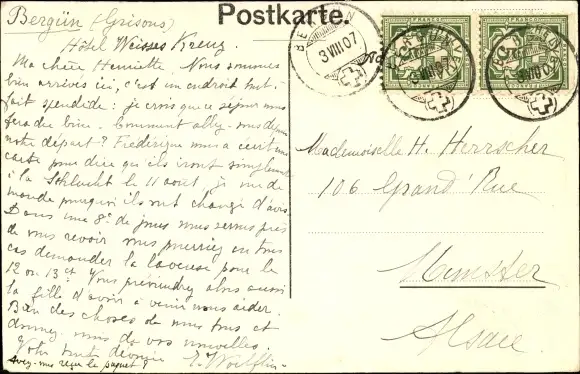 Postkarte.
Bergün (Grisons)
Hôtel Weisses Kreuz
Ma chère Henriette Nous sommes
bien arrivés ici, c'est un endroit tout
fait splendide : je crois que ce séjour nous
fera du bien. Comment allez-vous depuis
notre départ? Frédérique nous a écrit une
carte pour dire qu'ils iront simplement
à la Schlucht le 11 août, je me de
mande pourquoi ils ont changé d'avis.
Dans une 8e de jours nous serons près
de vous revoir vous pourriez en tous
cas demander la laveuse pour le
12 ou 13 et vous préviendrez alors aussi
la fille d'avoir à venir nous aider.
Bien des choses de nous tous et
donnez-nous de vos nouvelles.
Votre toute dévouée
E. Woelfflin
Avez-vous reçu le paquet?
BERGÜN
3 VIII 07
FRANCO
FRANCO
Mademoiselle H. Herrscher
106 Grand' Rue
Munster
Alsace